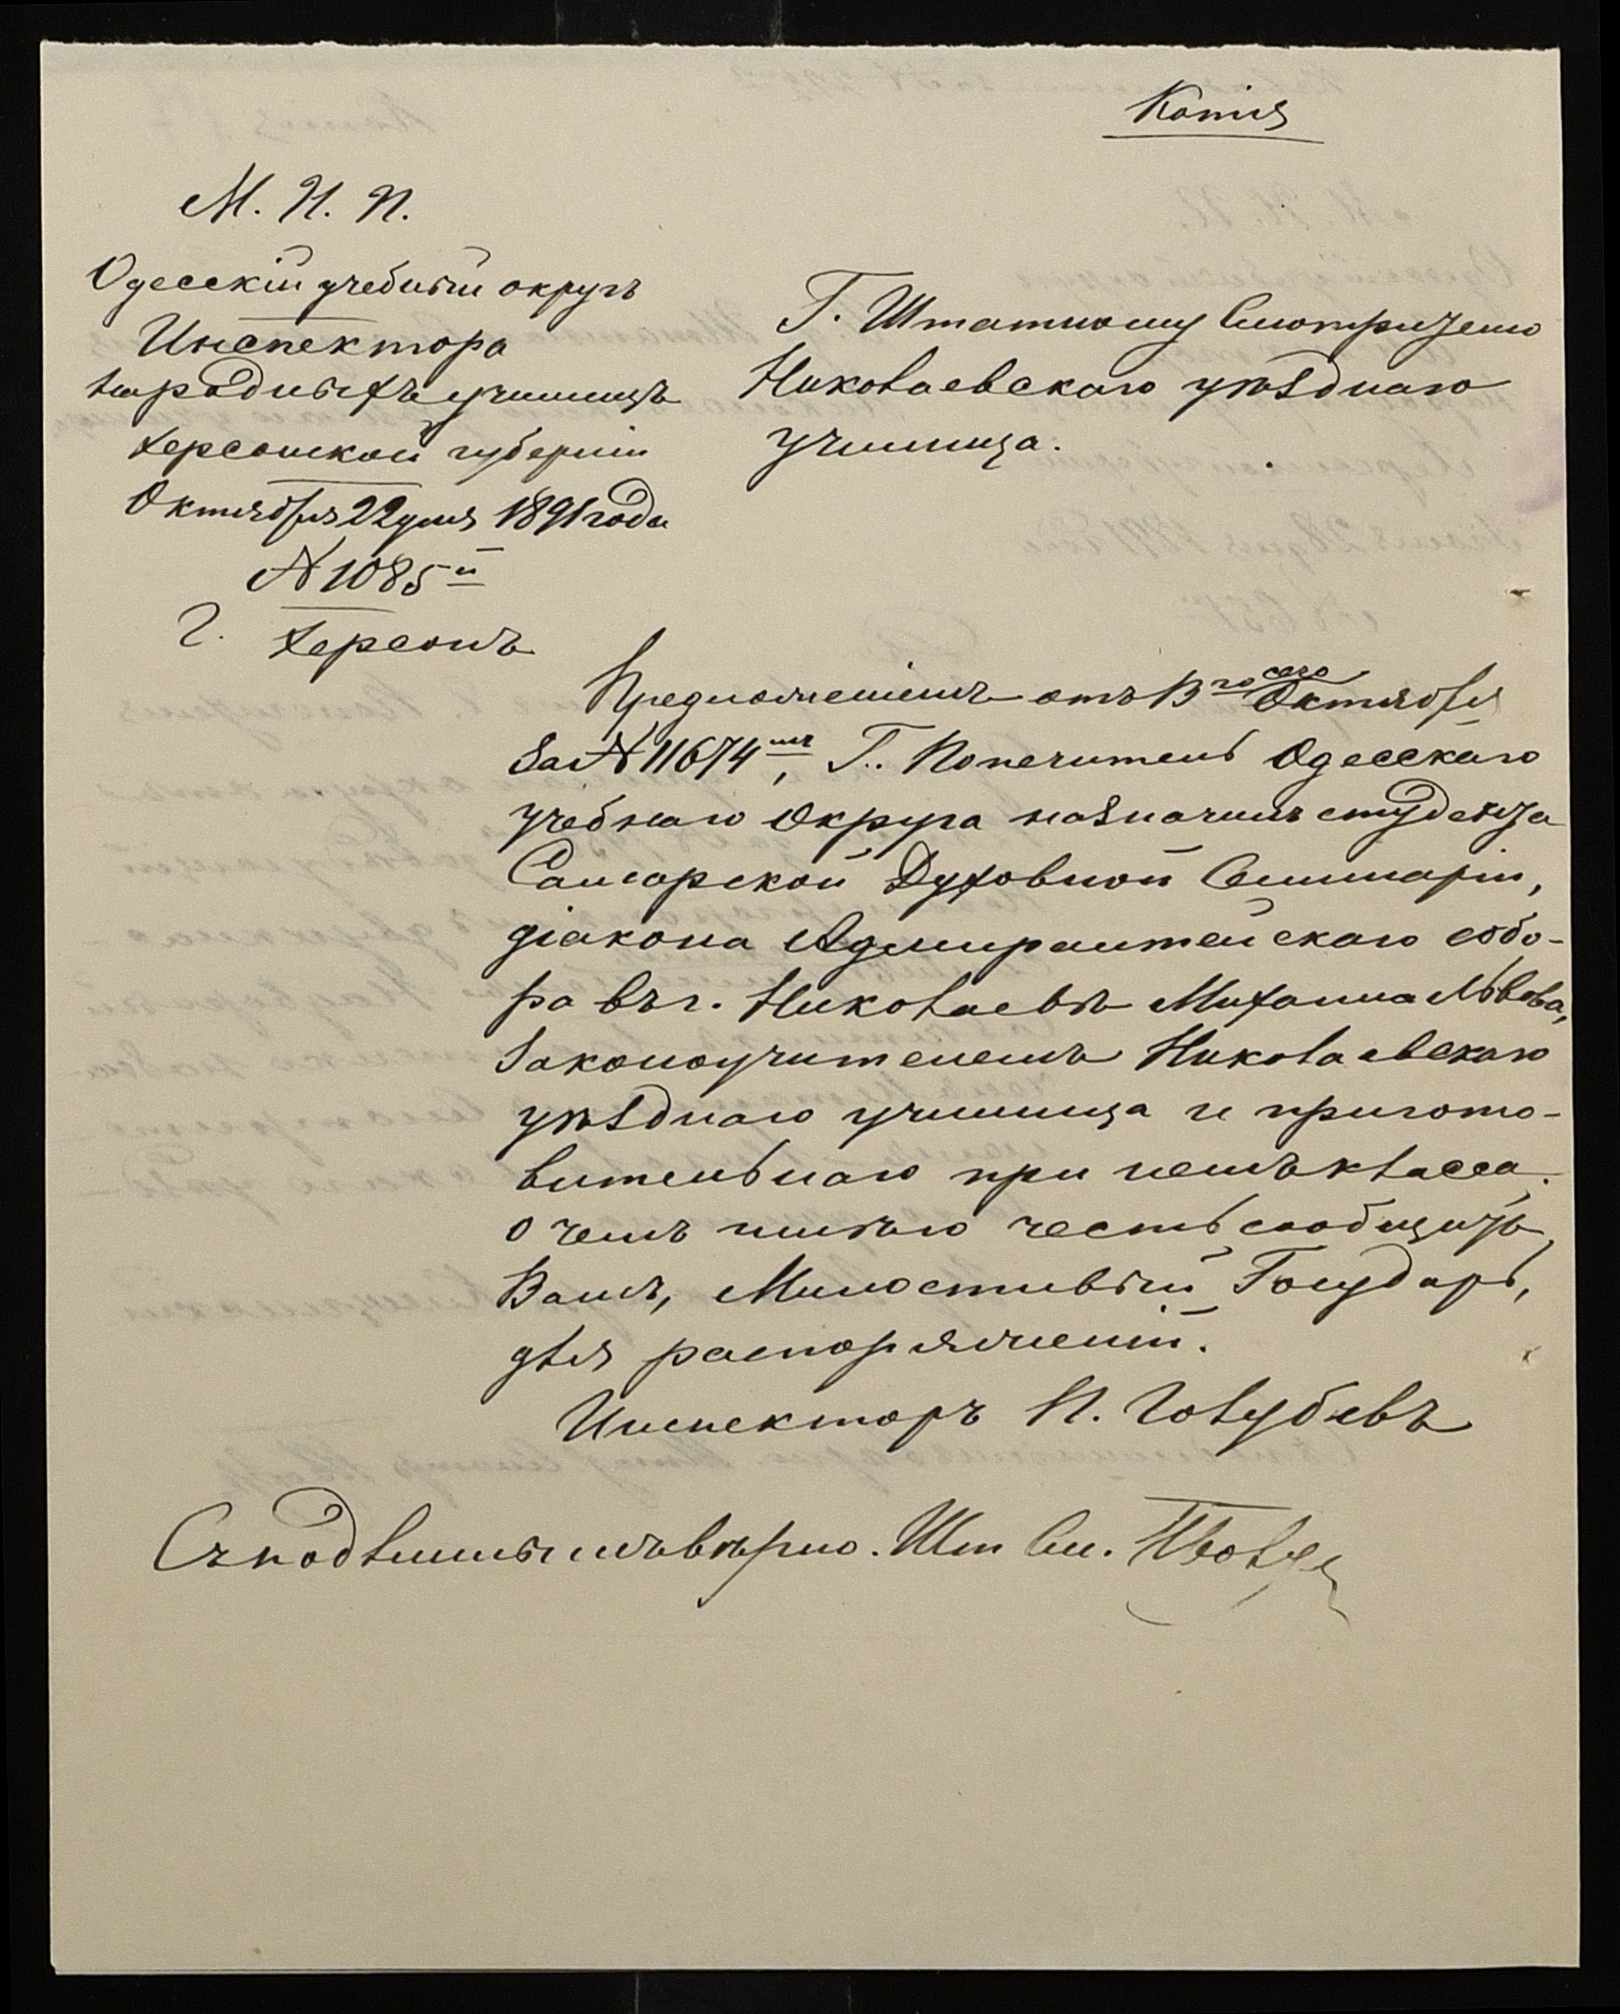 Копія
М. Н. П.
Одесскій учебный округъ
Инспектора
народныхъ училищъ
Херсонской губерніи
Октября 22 дня 1891 года
№ 1085й
г. Херсонъ
Г. Штатному Смотрителю
Николаевскаго уѣзднаго
училища.
Предложеніемъ отъ 13го сего Октября
за № 11674мъ, Г. Попечитель Одесскаго
учебнаго Округа назначилъ студента
Самарской Духовной Семинаріи,
діакона Адмиралтейскаго собо-
ра въ г. Николаевѣ Михаила Львова,
законоучителемъ Николаевскаго
уѣзднаго училища и пригото-
вительнаго при немъ класса.
о чемъ имѣю честь сообщить
Вамъ, Милостивый Государь,
для распоряженій.
Инспекторъ П. Голубевъ
Съ подлиннымъ вѣрно. Шт См.